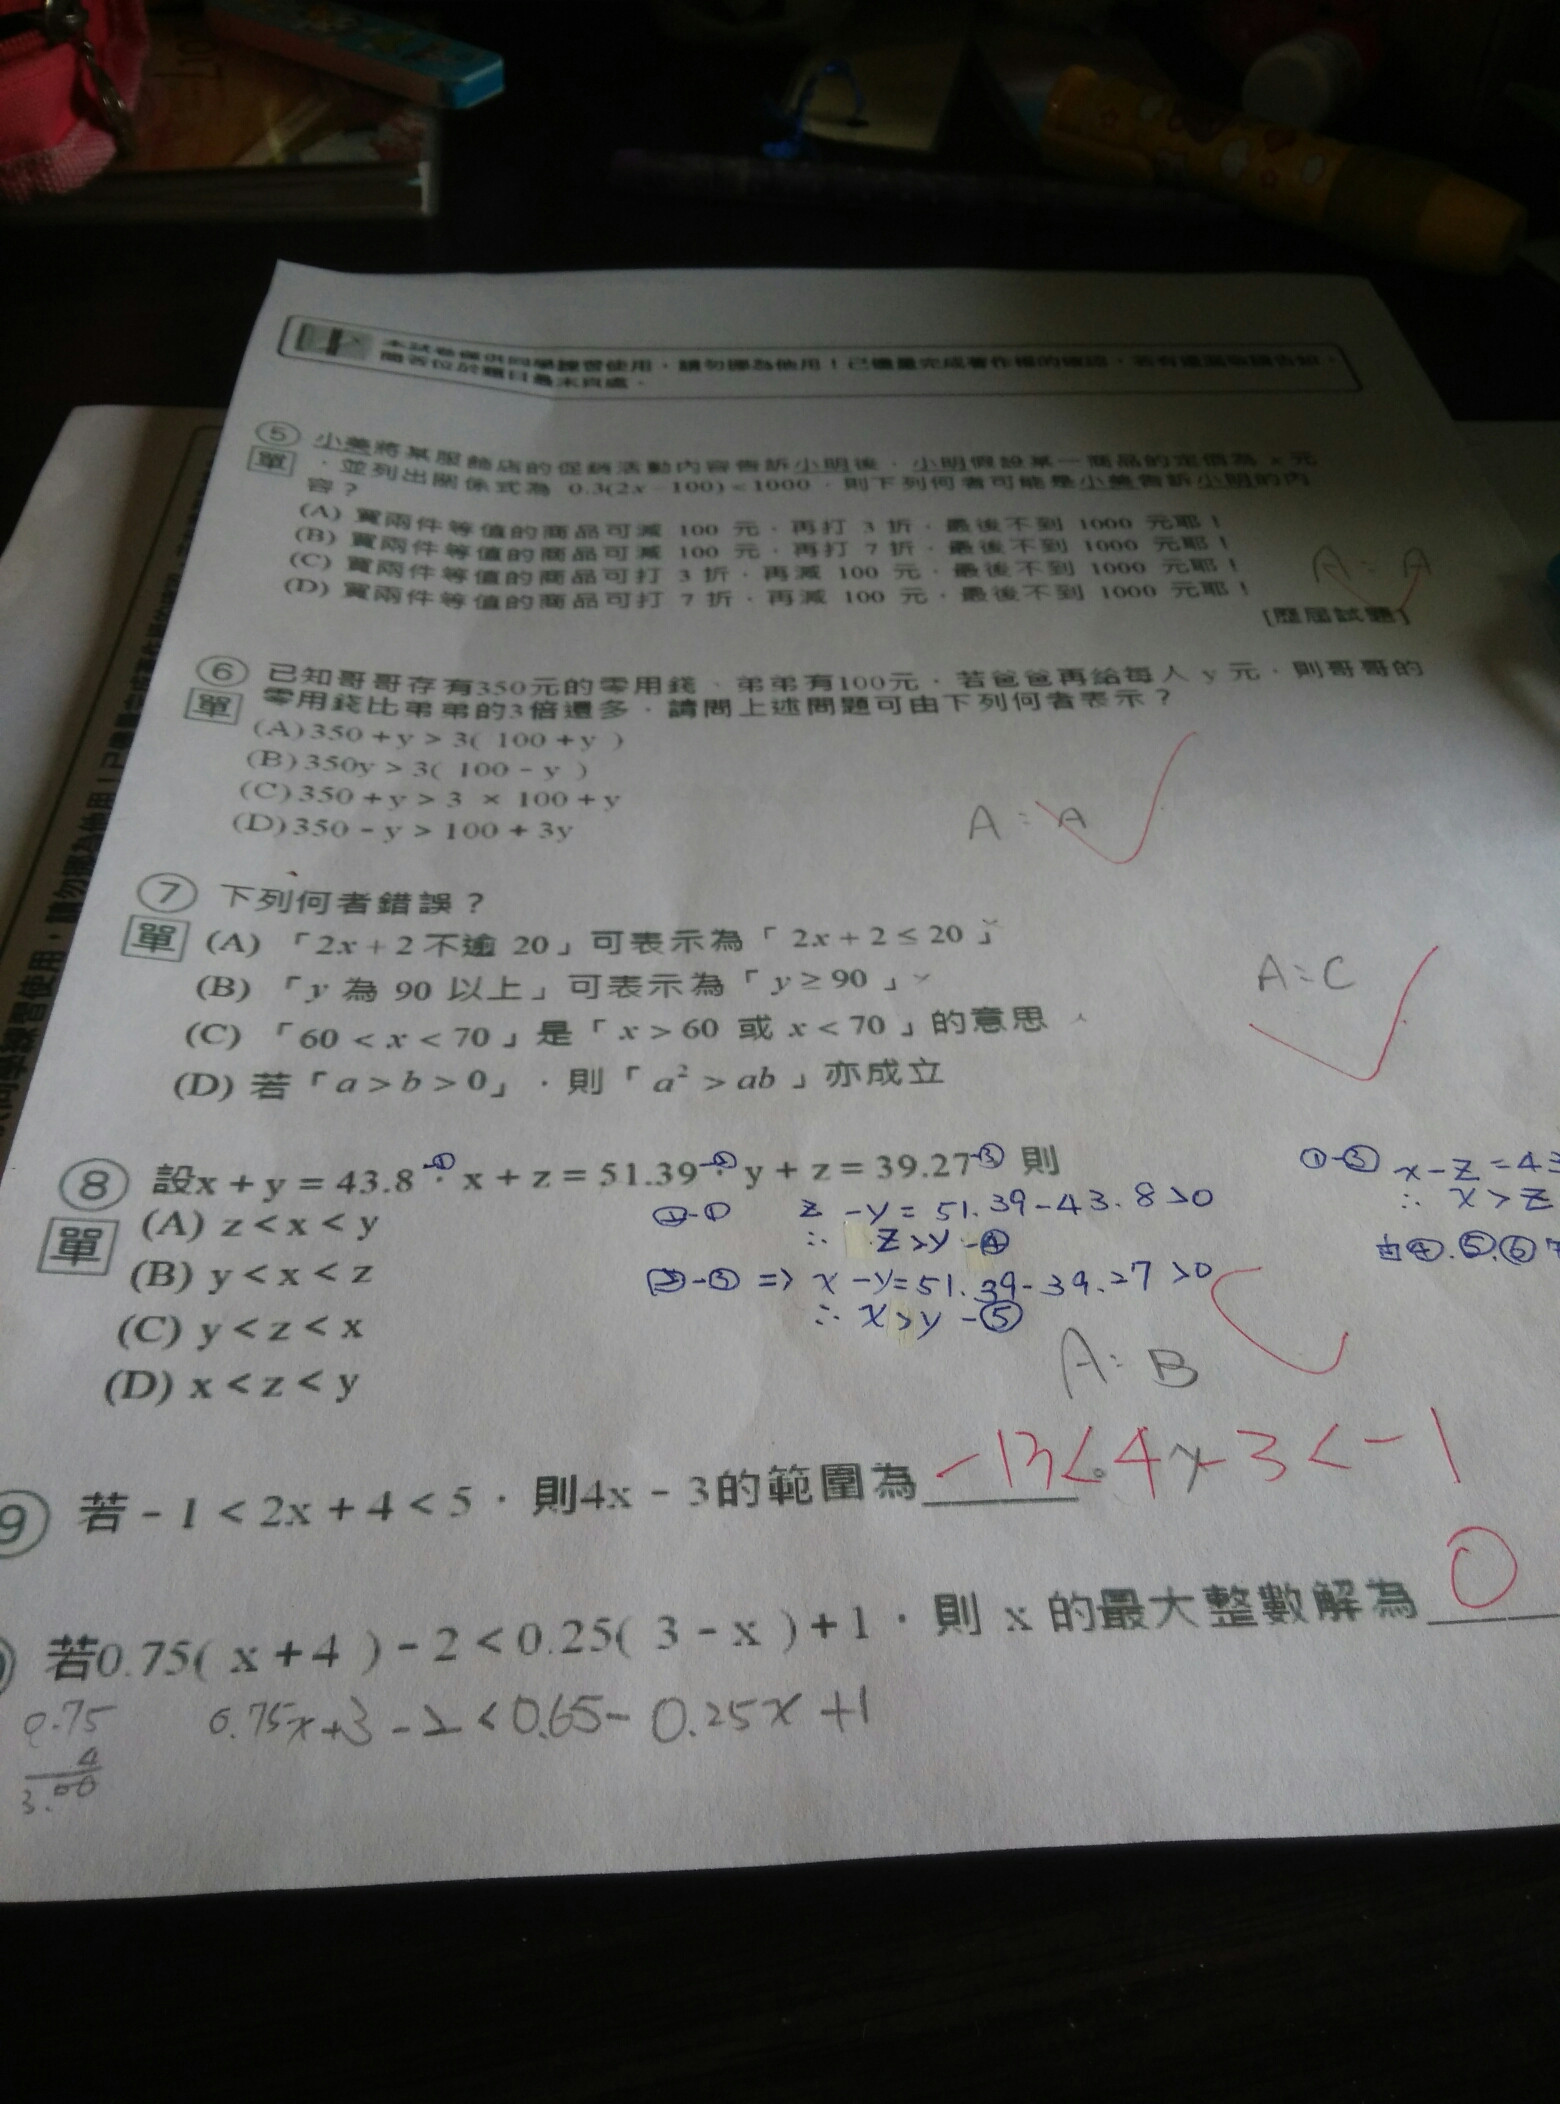 本試卷僅供同學練習使用，請勿挪為他用！已儘量完成著作權的確認，若有遺漏敬請告知。
⑤ 小美將某服飾店的促銷活動內容告訴小明後，小明假設某一商品的定價為 x 元
單 ，並列出關係式為 0.3(2x－100)<1000，則下列何者可能是小美告訴小明的內
容？
(A) 買兩件等值的商品可減 100 元，再打 3 折，最後不到 1000 元耶！
(B) 買兩件等值的商品可減 100 元，再打 7 折，最後不到 1000 元耶！
(C) 買兩件等值的商品可打 3 折，再減 100 元，最後不到 1000 元耶！
(D) 買兩件等值的商品可打 7 折，再減 100 元，最後不到 1000 元耶！
A：A
[歷屆試題]
⑥ 已知哥哥存有350元的零用錢、弟弟有100元，若爸爸再給每人 y 元，則哥哥的
單 零用錢比弟弟的3倍還多，請問上述問題可由下列何者表示？
(A) 350 + y > 3( 100 + y )
(B) 350y > 3( 100 - y )
(C) 350 + y > 3 × 100 + y
(D) 350 - y > 100 + 3y
A：A
⑦ 下列何者錯誤？
單 (A) 「2x + 2 不逾 20」可表示為「 2x + 2 ≤ 20 」
(B) 「y 為 90 以上」可表示為「 y ≥ 90 」
(C) 「60 < x < 70」是「x > 60 或 x < 70」的意思
(D) 若「a > b > 0」，則「a² > ab」亦成立
A：C
⑧ 設x + y = 43.8 -①，x + z = 51.39 -②，y + z = 39.27 -③ 則
單 (A) z < x < y
(B) y < x < z
(C) y < z < x
(D) x < z < y
②-① z - y = 51.39 - 43.8 > 0
∴ z > y -④
②-③ => x - y = 51.39 - 39.27 > 0
∴ x > y -⑤
①-③ x - z = 43
∴ x > z
由④.⑤.⑥
A：B
⑨ 若 - 1 < 2x + 4 < 5，則4x - 3的範圍為 -13 < 4x - 3 < -1
若0.75( x + 4 ) - 2 < 0.25( 3 - x ) + 1，則 x 的最大整數解為 0
0.75
4
3.00
0.75x + 3 - 2 < 0.65 - 0.25x + 1